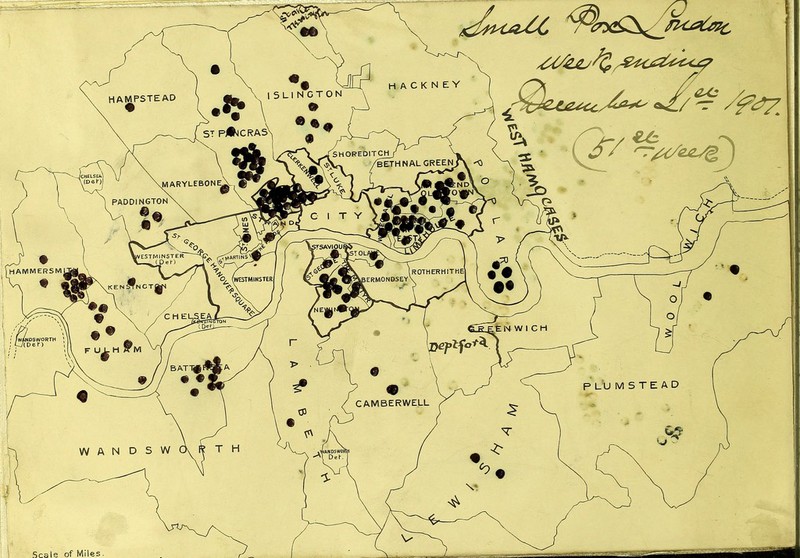 Small Pox London
Week ending
December 21st 1901.
(51st Week)
Stoke
Newington
HAMPSTEAD
ISLINGTON
HACKNEY
ST PANCRAS
SHOREDITCH
BETHNAL GREEN
CLERKENWELL
ST LUKE
CHELSEA
(Det)
MARYLEBONE
PADDINGTON
STRAND
CITY
MILE END
OLD TOWN
LIMEHOUSE
POPLAR
WEST HAM 9 CASES
ST JAMES
ST MARTINS
ST GEORGE HANOVER SQUARE
WESTMINSTER
(Det)
WESTMINSTER
ST SAVIOURS
ST OLAVE
ST GEORGE
BERMONDSEY
ROTHERHITHE
NEWINGTON
HAMMERSMITH
KENSINGTON
CHELSEA
KENSINGTON
(Det)
WANDSWORTH
(Det)
FULHAM
BATTERSEA
LAMBETH
CAMBERWELL
Deptford
GREENWICH
WOOLWICH
PLUMSTEAD
WANDSWORTH
WANDSWORTH
Det.
LEWISHAM
Scale of Miles.